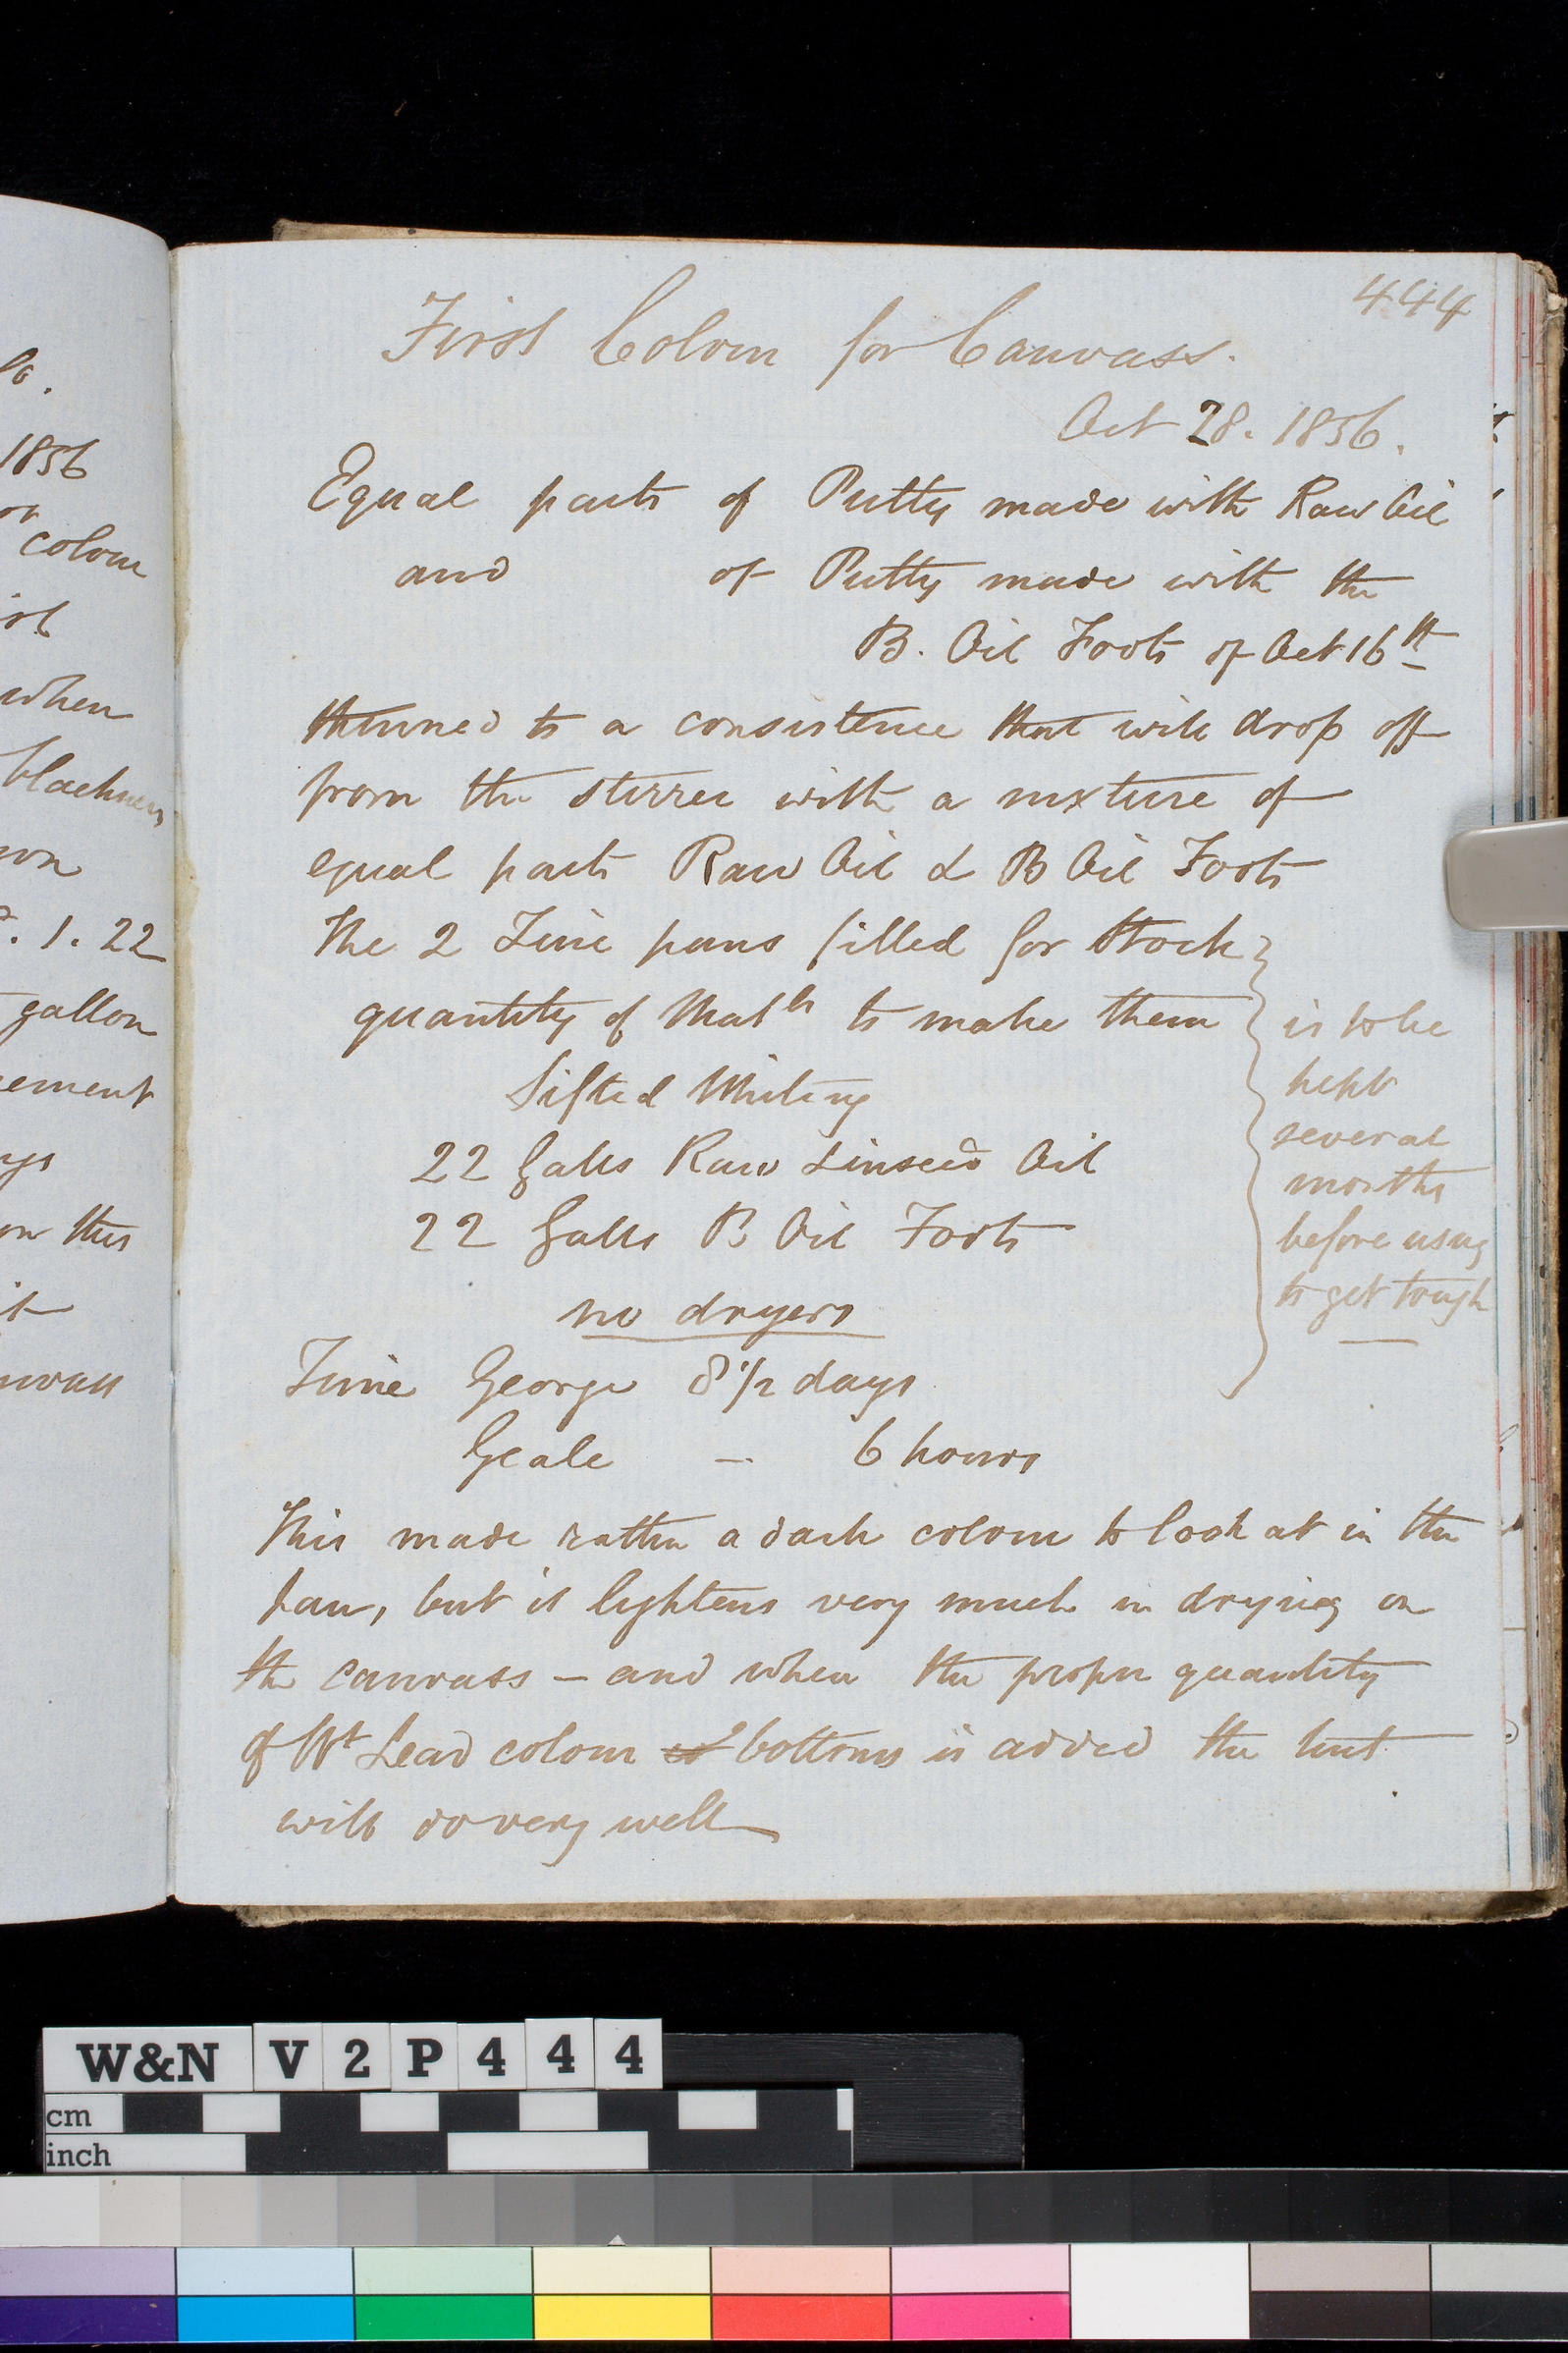 444
First Colour for Canvass.
Oct 28. 1856.
Equal parts of Putty made with Raw Oil
and of Putty made with the
B. Oil Foots of Oct 16th
thinned to a consistence that will drop off
from the stirrer with a mixture of
equal parts Raw Oil & B Oil Foots
The 2 Zinc pans filled for Stock
quantity of Matls to make them
Sifted Whiting
22 Galls Raw Linseed Oil
22 Galls B Oil Foots
no dryers
is to be
kept
several
months
before using
to get tough
Time George 8 1/2 days
Geale - 6 hours
This made rather a dark colour to look at in the
pan, but it lightens very much in drying on
the canvass - and when the proper quantity
of Wt Lead colour bottoms is added the tint
will do very well
lo.
1856
or
colour
when
blackness
on
. 1. 22
gallon
ement
on this
it
nvass
W&N V 2 P 4 4 4
cm
inch